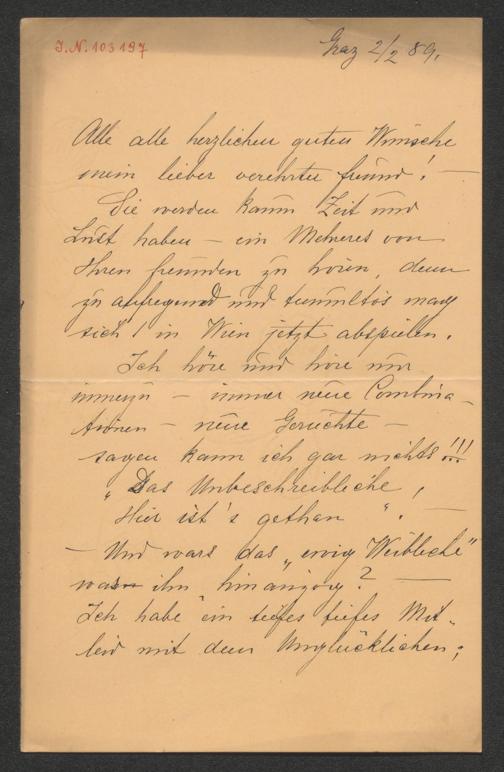 J.N. 103197
Graz 2/2 89.
Alle alle herzlichen guten Wünsche
mein lieber verehrter freund! —
Sie werden kaum Zeit und
Lust haben — ein Mehreres von
Ihren freunden zu hören, denn
zu aufregend und tumultös mag
sich's in Wien jetzt abspielen.
Ich höre und höre nur
immerzu — immer neue Combina-
tionen — neue Gerüchte —
sagen kann ich gar nichts!!!
"Das Unbeschreibliche,
Hier ist's gethan". —
— Und wars das "ewig Weibliche"
was ihn hinanzog? —
Ich habe ein tiefes tiefes Mit-
leid mit dem Unglücklichen;